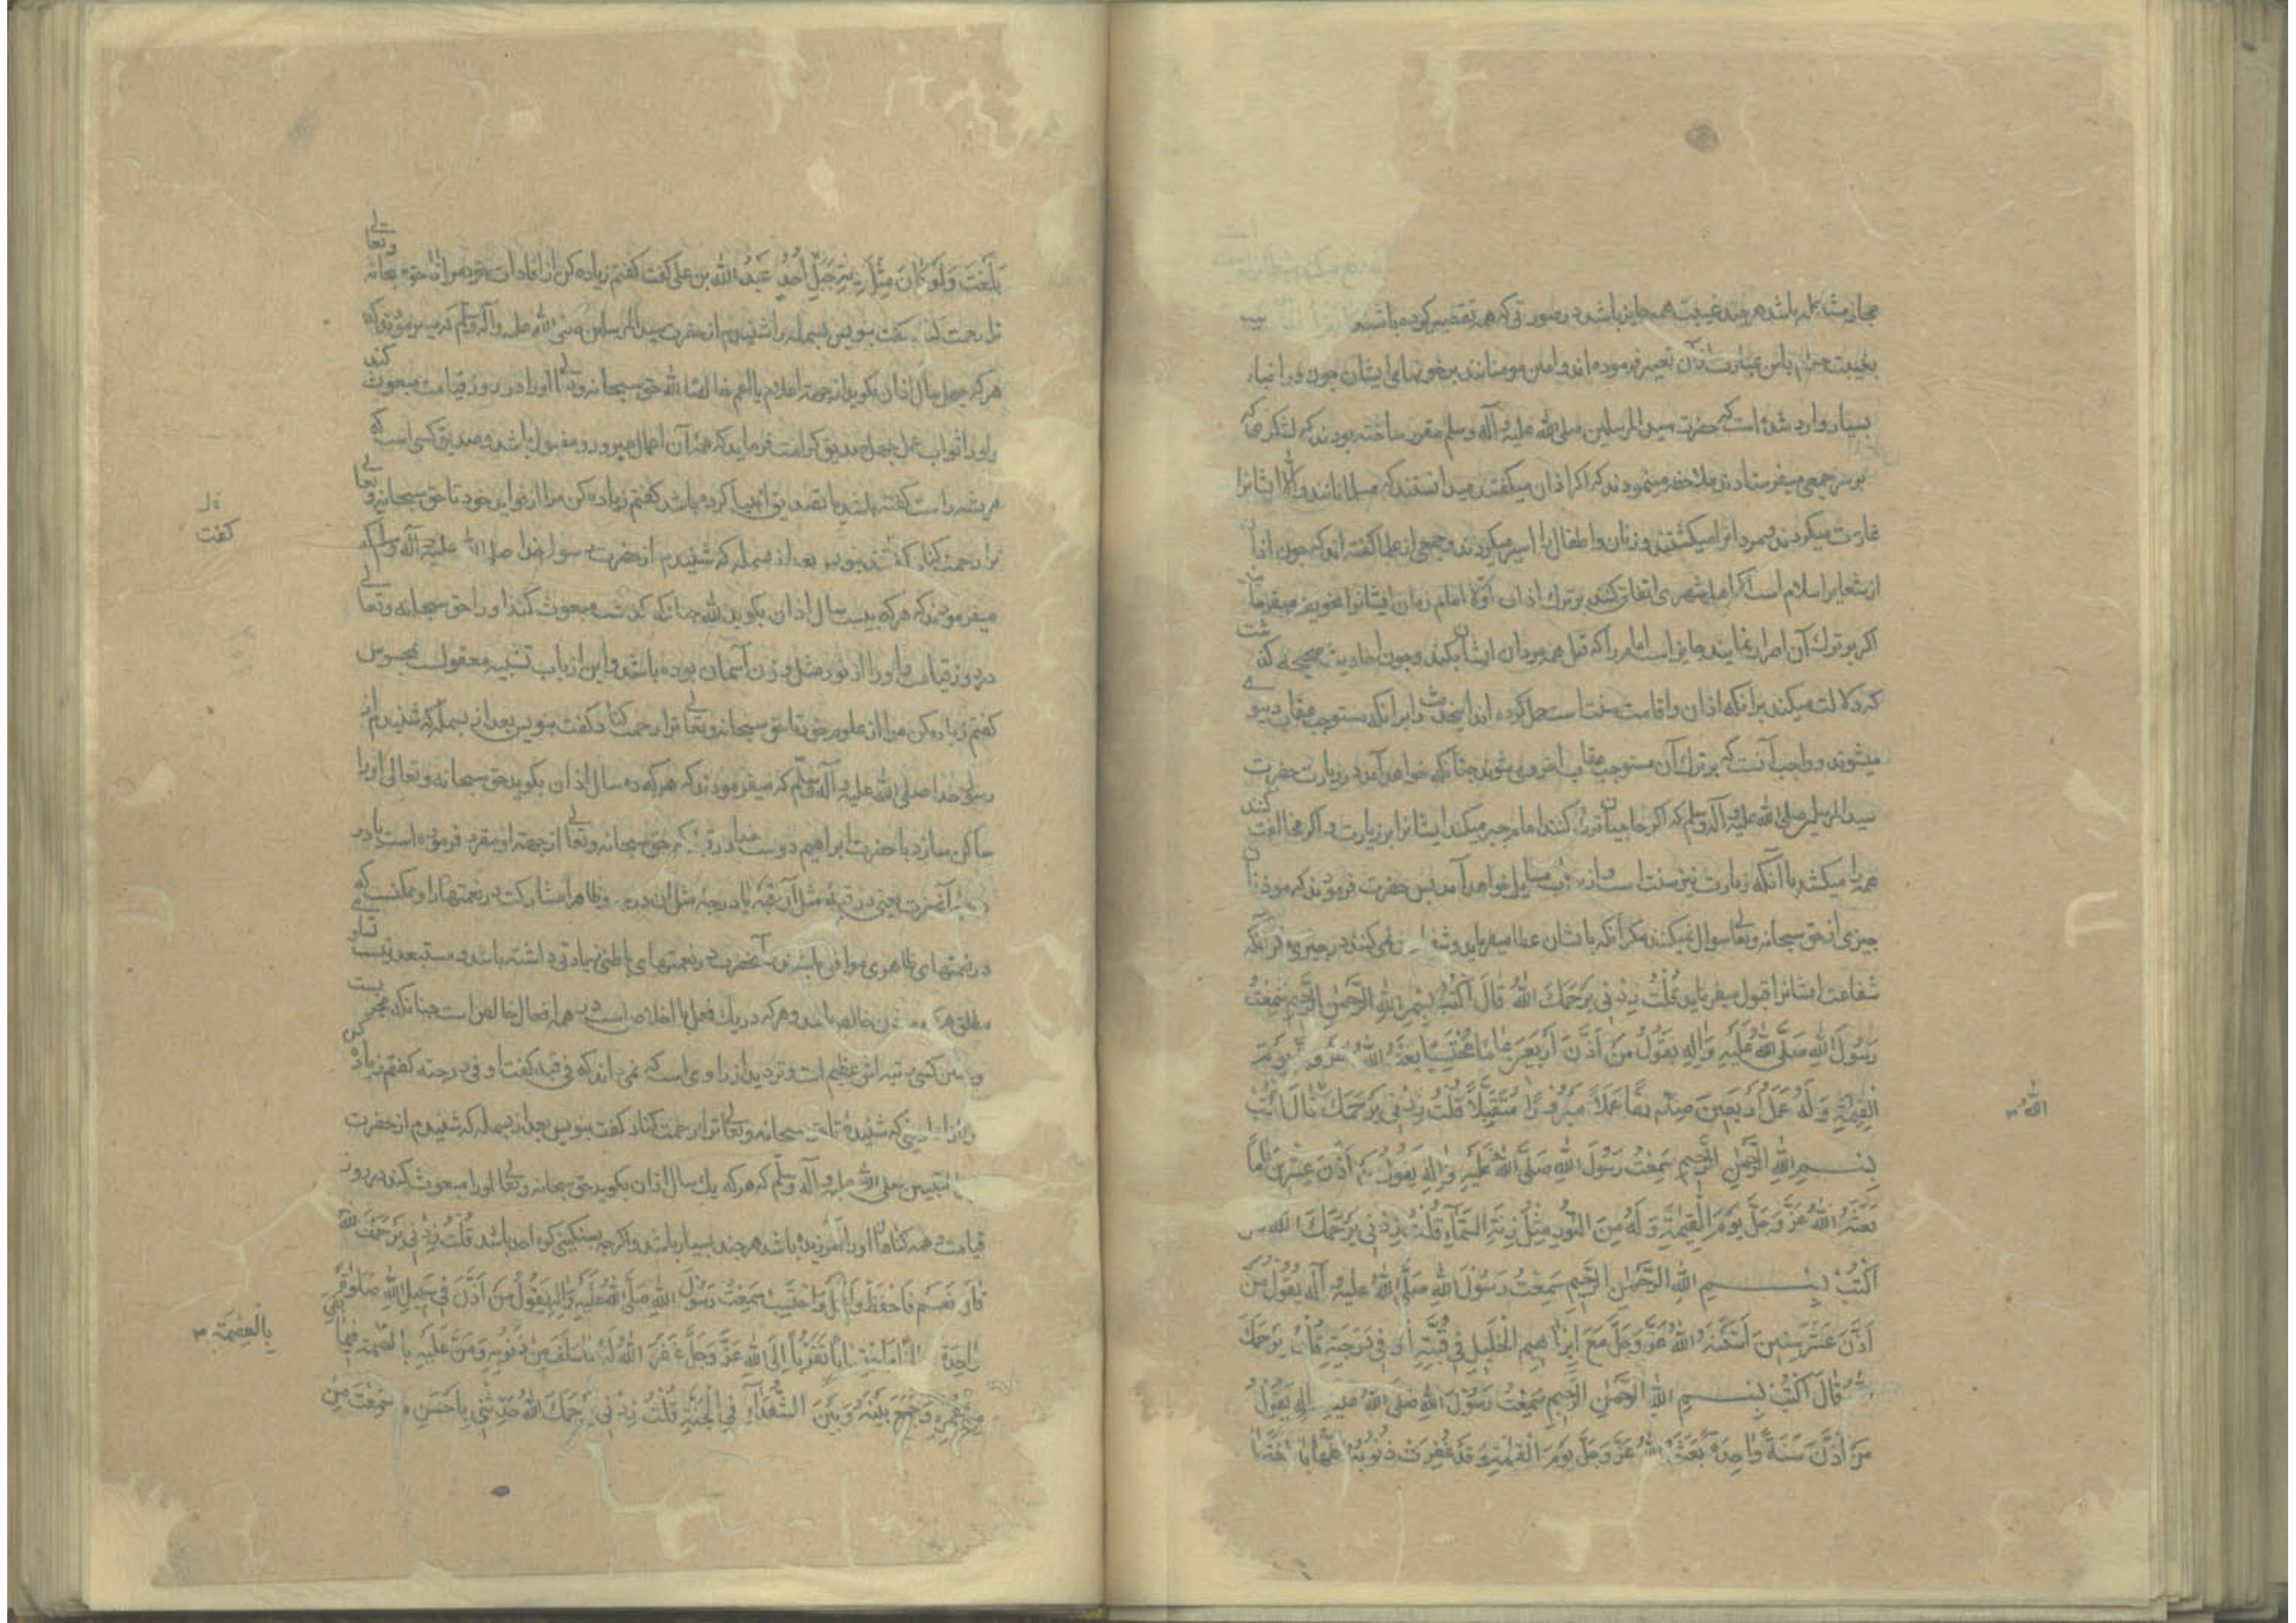 مجاز مشاکله باشد هرچند غیبت همه جایز باشد در صورتی که همه تقصیر کرده باشند
بغیبت حرام باین عبارت تعبیر فرموده اند و امین مومنانند بر خونهای ایشان چون در اخبار
بسیار وارد شده است که حضرت سید المرسلین صلی الله علیه و آله و سلم مقرر ساخته بودند که لشکر که
بر سر جمعی میفرستادند ملاحظه مینمودند که اگر اذان میگفتند میدانستند که مسلمانانند والا ایشانرا
غارت میکردند و مردانرا میکشتند و زنان و اطفال را اسیر میکردند و جمعی از علما گفته اند که چون اذان
از شعایر اسلام است اگر اهل شهری اتفاق کنند بر ترک اذان اولا امام زمان ایشانرا تخویف میفرماید
اگر بر ترک آن اصرار نمایند جایز است امام را که قتل همه مردان ایشان بکند و چون احادیث صحیحه گذشت
که دلالت میکند برانکه اذان و اقامت سنت است حمل کرده اند این حدیث را برانکه مستوجب عقاب دنیوی
میشوند و واجب آنست که بر ترک آن مستوجب عقاب اخروی شوند چنانکه خواهد آمد در زیارت حضرت
سید المرسلین صلی الله علیه و آله و سلم که اگر حاجیان ترک کنند امام جبر میکند ایشانرا بر زیارت و اگر مخالفت کنند
همه را میکشد با آنکه زیارت نیز سنت است و ازین باب مسایل خواهد آمد پس حضرت فرمودند که موذنان
چیزی از حق سبحانه و تعالی سوال نمیکنند مگر آنکه بایشان عطا میفرماید و شفاعت نمی کنند در چیزی مگر آنکه
شفاعت ایشانرا قبول میفرماید قُلْتُ زِدْنِي يَرْحَمُكَ اللهُ قَالَ اُكْتُبْ بِسْمِ اللهِ الرَّحْمٰنِ الرَّحِيمِ سَمِعْتُ
رَسُولَ اللهِ صَلَّى اللهُ عَلَيْهِ وَآلِهِ يَقُولُ مَنْ اَذَّنَ اَرْبَعِينَ عَامًا مُحْتَسِبًا بَعَثَهُ اللهُ عَزَّ وَجَلَّ يَوْمَ
الْقِيٰمَةِ وَلَهُ عَمَلُ اَرْبَعِينَ صِدِّيقًا عَمَلًا مَبْرُورًا مُتَقَبَّلًا قُلْتُ زِدْنِي يَرْحَمُكَ اللهُ قَالَ اُكْتُبْ
بِسْمِ اللهِ الرَّحْمٰنِ الرَّحِيمِ سَمِعْتُ رَسُولَ اللهِ صَلَّى اللهُ عَلَيْهِ وَآلِهِ يَقُولُ مَنْ اَذَّنَ عِشْرِينَ عَامًا
بَعَثَهُ اللهُ عَزَّ وَجَلَّ يَوْمَ الْقِيٰمَةِ وَلَهُ مِنَ النُّورِ مِثْلُ زِنَةِ السَّمَآءِ قُلْتُ زِدْنِي يَرْحَمُكَ اللهُ
اُكْتُبْ بِسْمِ اللهِ الرَّحْمٰنِ الرَّحِيمِ سَمِعْتُ رَسُولَ اللهِ صَلَّى اللهُ عَلَيْهِ وَ آلِهِ يَقُولُ مَنْ
اَذَّنَ عَشْرَ سِنِينَ اَسْكَنَهُ اللهُ عَزَّ وَجَلَّ مَعَ اِبْرٰاهِيمَ الْخَلِيلِ فِي قُبَّتِهِ اَوْ فِي دَرَجَتِهِ يَرْحَمُكَ
اللهُ قَالَ اُكْتُبْ بِسْمِ اللهِ الرَّحْمٰنِ الرَّحِيمِ سَمِعْتُ رَسُولَ اللهِ صَلَّى اللهُ عَلَيْهِ وَآلِهِ يَقُولُ
مَنْ اَذَّنَ سَنَةً وَاحِدَةً بَعَثَهُ اللهُ عَزَّ وَجَلَّ يَوْمَ الْقِيٰمَةِ وَقَدْ غُفِرَتْ ذُنُوبُهُ كُلُّهَا
الله
بَلَغَتْ وَلَوْ كَانَ مِثْلَ زِنَةِ جَبَلِ اُحُدٍ عبد الله بن علی گفت گفتم زیاده کن از افادات خود مرا تا حق سبحانه وتعالی
ترا رحمت کند گفت بنویس بسمله را شنیدم از حضرت سید المرسلین صلی الله علیه و آله و سلم که میفرمودند که
هر که چهل سال اذان بگوید از جهت اعلام یا اعم خالصا لله حق سبحانه وتعالی او را در روز قیامت مبعوث کند
و او را ثواب عمل چهل صدیق کرامت فرماید که همه آن اعمال مبرور و مقبول باشد و صدیق کسی است که
همیشه راست گفته باشد یا تصدیق انبیا کرده باشد گفتم زیاده کن مرا از فواید خود تا حق سبحانه و تعالی
ترا رحمت کناد گفت بنویس بعد از بسمله که شنیدم از حضرت رسول خدا صلی الله علیه و آله و سلم که
میفرمودند که هر که بیست سال اذان بگوید لله چنانکه گذشت مبعوث گرداند او را حق سبحانه و تعالی
در روز قیامت و او را از نور مثل وزن آسمان بوده باشد و این از باب تشبیه معقول بمحسوس
گفتم زیاده کن مرا از علوم خود تا حق سبحانه و تعالی ترا رحمت کناد گفت بنویس بعد از بسمله که شنیدم از
رسول خدا صلی الله علیه و آله و سلم که میفرمودند که هر که ده سال اذان بگوید حق سبحانه و تعالی او را
ساکن سازد با حضرت ابراهیم دوست خدا در قبه که حق سبحانه و تعالی از جهت او مقرر فرموده است یا در
درجه آنحضرت یعنی در قبه مثل آن قبه یا درجه مثل آن درجه و ظاهرا مشارکت در نعمتها را و ممکنست که
در نعمتهای ظاهری موافق باشند و آنحضرت در نعمتهای باطنی زیادتی داشته باشد و مستبعد نیست تساوی
مطلق هرگاه مؤذن خالص باشد و هر که در یک فعل با اخلاص است در همه افعال خالص است چنانکه مجربست
و چنین کسی رتبه اش عظیم است و تردید از راوی است که نمی داند که فی قبته گفت او فی درجته گفتم زیاده کن
که شنیده تا حق سبحانه و تعالی ترا رحمت کناد گفت بنویس بعد از بسمله که شنیدم از حضرت
صلی الله علیه و آله و سلم که هر که یک سال اذان بگوید حق سبحانه و تعالی او را مبعوث کند در روز
قیامت و همه گناهان او را آمرزیده باشد هر چند بسیار باشد و اگر چه بسنگینی کوه احد باشد قُلْتُ زِدْنِي يَرْحَمُكَ اللهُ
قَالَ نَعَمْ فَاحْفَظْ وَاعْمَلْ وَاحْتَسِبْ سَمِعْتُ رَسُولَ اللهِ صَلَّى اللهُ عَلَيْهِ وَآلِهِ يَقُولُ مَنْ اَذَّنَ فِي سَبِيلِ اللهِ صَلٰوةً
وَاحِدَةً اِيمَانًا وَاحْتِسَابًا وَتَقَرُّبًا اِلَى اللهِ عَزَّ وَجَلَّ غَفَرَ اللهُ لَهُ مَا سَلَفَ مِنْ ذُنُوبِهِ وَمَنَّ عَلَيْهِ فِيمَا بَقِيَ
مِنْ عُمُرِهِ وَجَمَعَ بَيْنَهُ وَبَيْنَ الشُّهَدَاءِ فِي الْجَنَّةِ قُلْتُ زِدْنِي يَرْحَمُكَ اللهُ حَدِّثْنِي بِاَحْسَنِ مَا سَمِعْتَ مِنْ
گفت
بِالْعِصْمَةِ